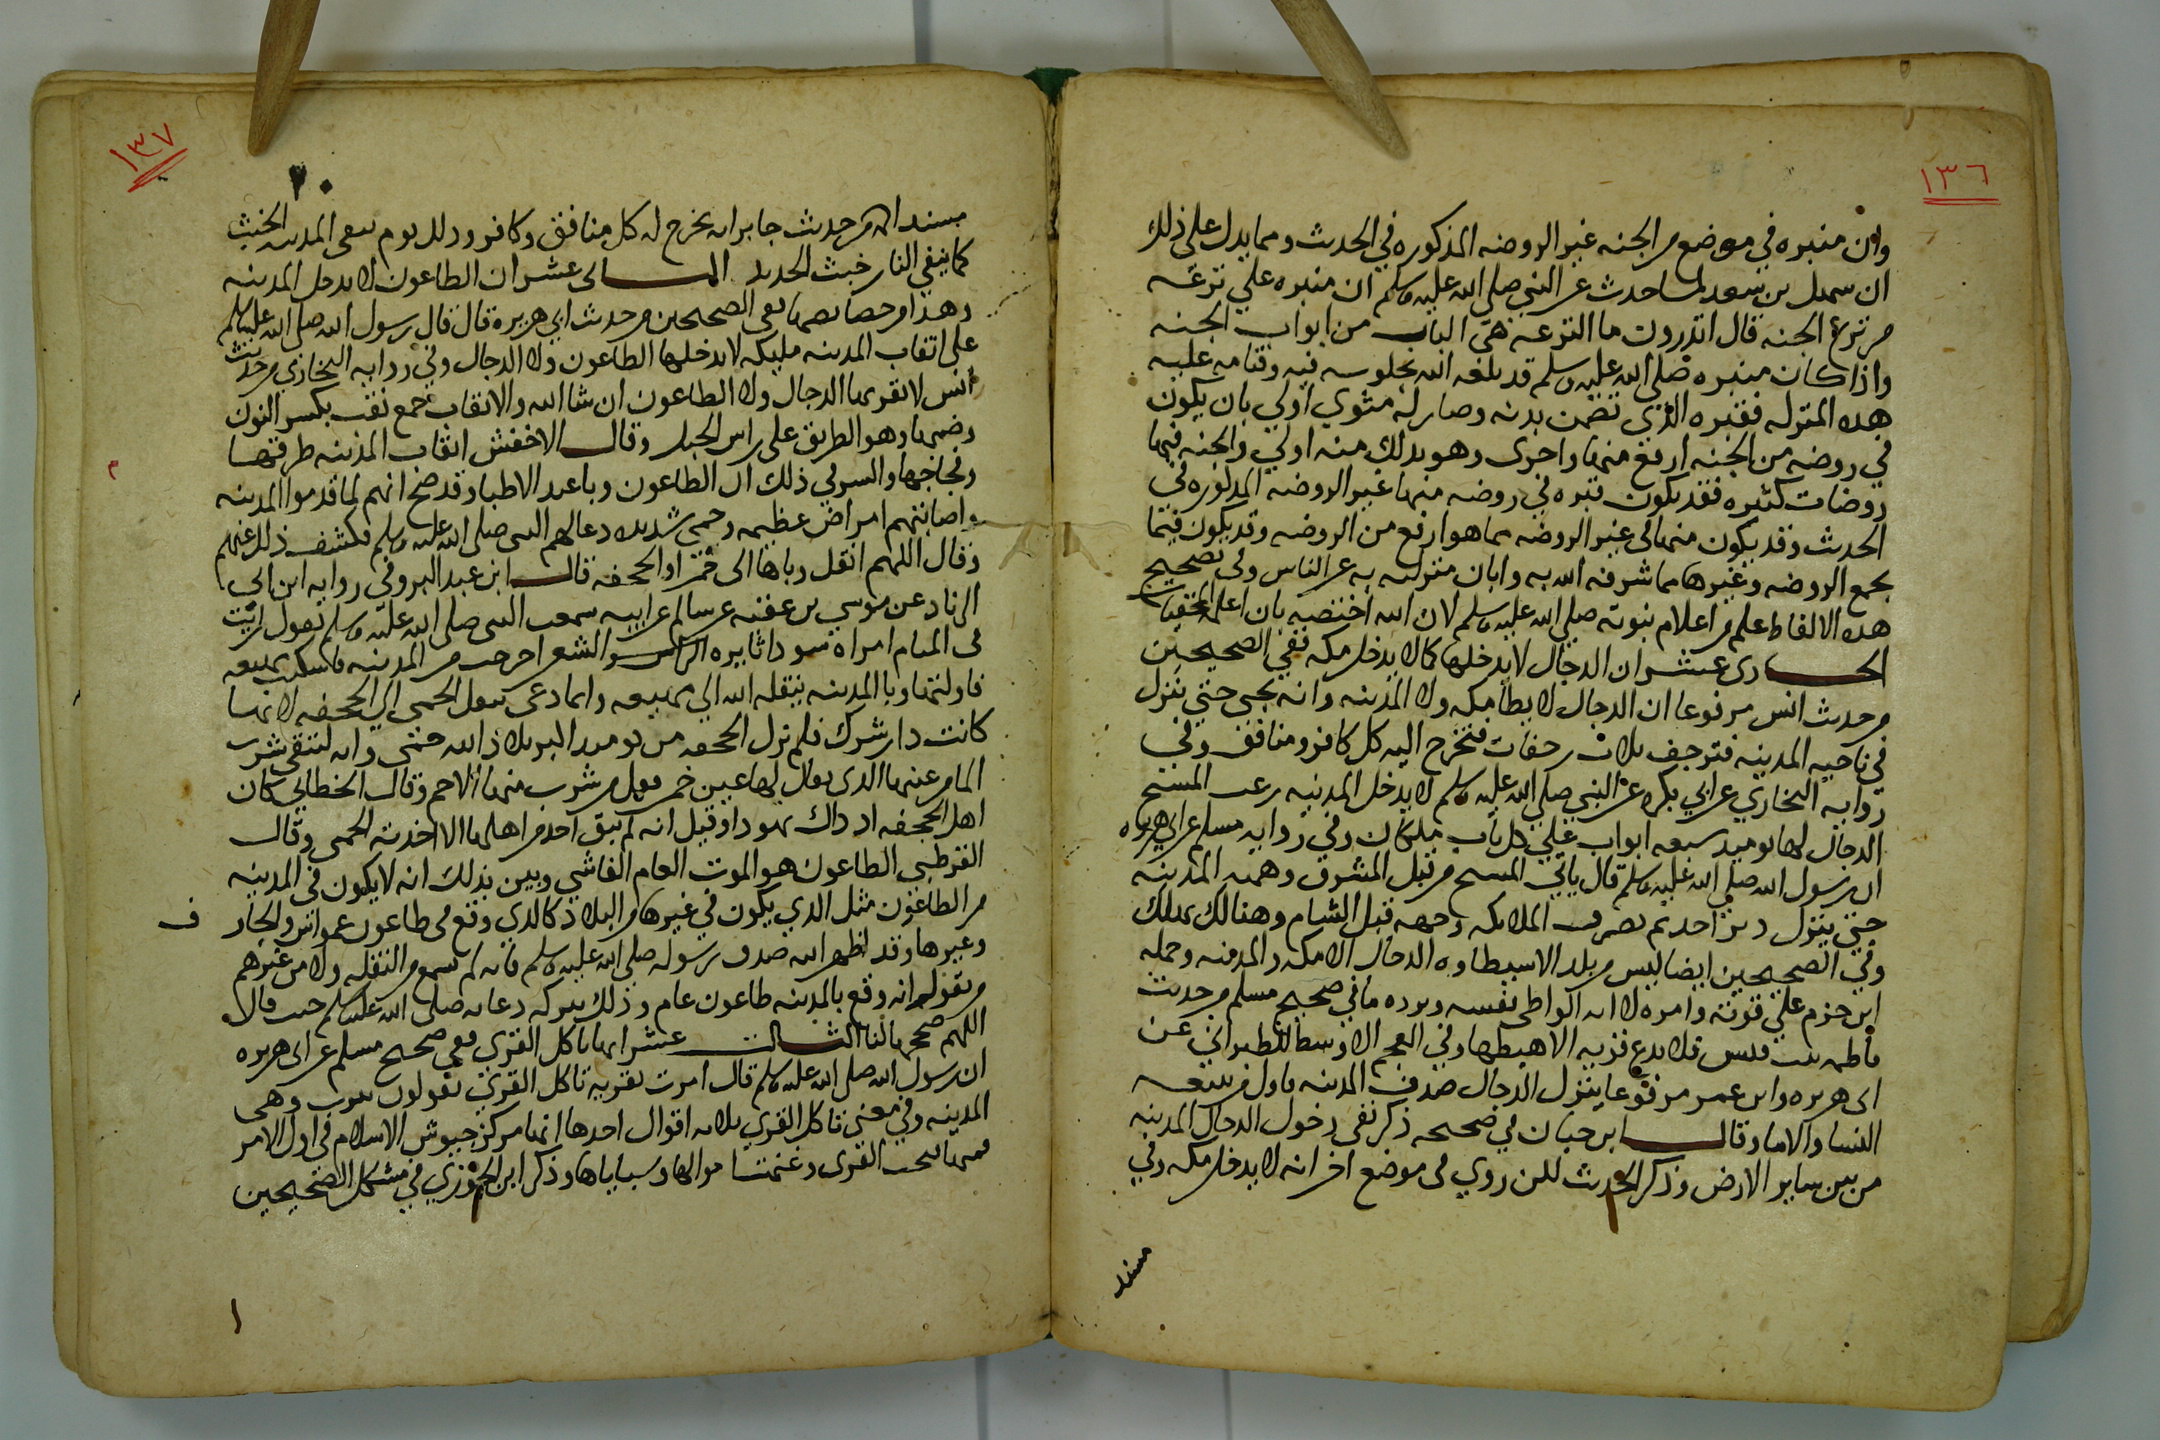 ١٣٦
وان منبره في موضع من الجنه غير الروضه المذكوره في الحدث ومما يدل على ذلك
ان سهل بن سعد لما حدث عن النبي صلى الله عليه وسلم ان منبره علي ترعه
من ترع الجنه قال اتدرون ما الترعه هي الباب من ابواب الجنه
واذا كان منبره صلي الله عليه وسلم قد بلغه الله بجلوسه فيه وقيامه عليه
هذه المنزله فقبره الذي تضمن بدنه وصار له مثوي اولي بان يكون
في روضه من الجنه ارفع منها واحرى وهو بذلك منه اولي والجنه فيها
روضات كثيره فقد يكون قبره في روضه منها غير الروضه المذكوره في
الحدث وقد يكون منها في غير الروضه مما هو ارفع من الروضه وقد يكون فيما
يجمع الروضه وغيرها مما شرفه الله به وابان منزلته به عن الناس وفي تصحيح
هذه الالفاظ علم من اعلام نبوته صلي الله عليه وسلم لان الله اختصه بان اعلمه
الحادى عشر ان الدجال لا يدخلها كما لا يدخل مكه ففي الصحيحين
من حدث انس مرفوعا ان الدجال لا يطا مكه ولا المدينه وانه يجي حتي ينزل
في ناحيه المدينه فترجف ثلاث رجفات فيخرج اليه كل كافر ومنافق وفي
روايه البخاري عن ابي بكره عن النبي صلي الله عليه وسلم لا يدخل المدينه رعب المسيح
الدجال لها يوميد سبعه ابواب علي كل باب ملكان وفي روايه مسلم عن ابي هريره
ان رسول الله صلي الله عليه وسلم قال ياتي المسيح من قبل المشرق وهمه المدينه
حتي ينزل دبر احد ثم تصرف الملائكه وجهه قبل الشام وهنالك يهلك
وفي الصحيحين ايضا ليس من بلد الا سيطاوه الدجال الا مكه والمدينه وحمله
ابن حزم علي قوته وامره لا انه الواطى بنفسه ويرده ما في صحيح مسلم من حديث
فاطمه بنت قيس فلا يدع قريه الا هبطها وفي المعجم الاوسط للطبراني عن
ابى هريره وابن عمر مرفوعا ينزل الدجال المدينه
النسا والاما وقال ابن حبان في صحيحه ذكر نفي دخول الدجال المدينه
من بين ساير الارض وذكر الحديث لكن روي في موضع اخر انه لا يدخل مكه وفي
مسند
١٣٧
٢٠
مسند من حديث جابر انه يخرج له كل منافق وكافر وذلك يوم تنفى المدينه الخبث
كما ينفي النار خبث الحديد الثانى عشر ان الطاعون لا يدخل المدينه
وهذا من خصايصها ففي الصحيحين من حدث ابي هريره قال قال رسول الله صلى الله عليه وسلم
على انقاب المدينه مليكه لا يدخلها الطاعون ولا الدجال وفي روايه البخاري من حديث
انس لا يقربها الدجال ولا الطاعون ان شا الله والانقاب جمع نقب بكسر النون
وضمها وهو الطريق على راس الجبل وقال الاخفش انقاب المدينه طرقها
وفجاجها والسر في ذلك ان الطاعون وبا عند الاطبا وقد صح انهم لما قدموا المدينه
واصابتهم امراض عظيمه وحمي شديده دعا لهم النبى صلى الله عليه وسلم فكشف ذلك عنهم
وقال اللهم انقل وباها الى خم او الجحفه قال ابن عبد البر وفي روايه ابن ابي
الزناد عن موسي بن عقبه عن سالم عن ابيه سمعت النبى صلى الله عليه وسلم يقول رايت
في المنام امراه سودا ثايره الراس والشعر اخرجت من المدينه فاسكنت بمهيعه
فاولتها وبا المدينه ينقله الله الي مهيعه وانما دعى بنقل الحمى الي الجحفه لانها
كانت دار شرك فلم تزل الجحفه من يوميد اكثر بلاد الله حمى وانه ليتقى شرب
الما من عينها الذى يقال لها عين خم فقل من شرب منها الا حم وقال الخطابي كان
اهل الجحفه اد داك يهودا وقيل انه لم يبق احد من اهلها الا اخذته الحمى وقال
القرطبى الطاعون هو الموت العام الفاشي وبين بذلك انه لا يكون في المدينه
من الطاعون مثل الذي يكون في غيرها من البلاد كالذي وقع في طاعون عمواس والجارف
وغيرها وقد اظهر الله صدق رسوله صلى الله عليه وسلم فانه لم نسمع من النقله ولا من غيرهم
من يقول انه وقع بالمدينه طاعون عام وذلك ببركه دعايه صلى الله عليه وسلم حيث قال
اللهم صححها لنا الثالث عشر انها تاكل القري ففي صحيح مسلم عن ابى هريره
ان رسول الله صلى الله عليه وسلم قال امرت بقريه تاكل القري يقولون يثرب وهى
المدينه وفي معني تاكل القري ثلاثه اقوال احدها انها مركز جيوش الاسلام في اول الامر
فمنها فتحت القرى وغنمت اموالها وسباياها وذكر ابن الجوزي في مشكل الصحيحين